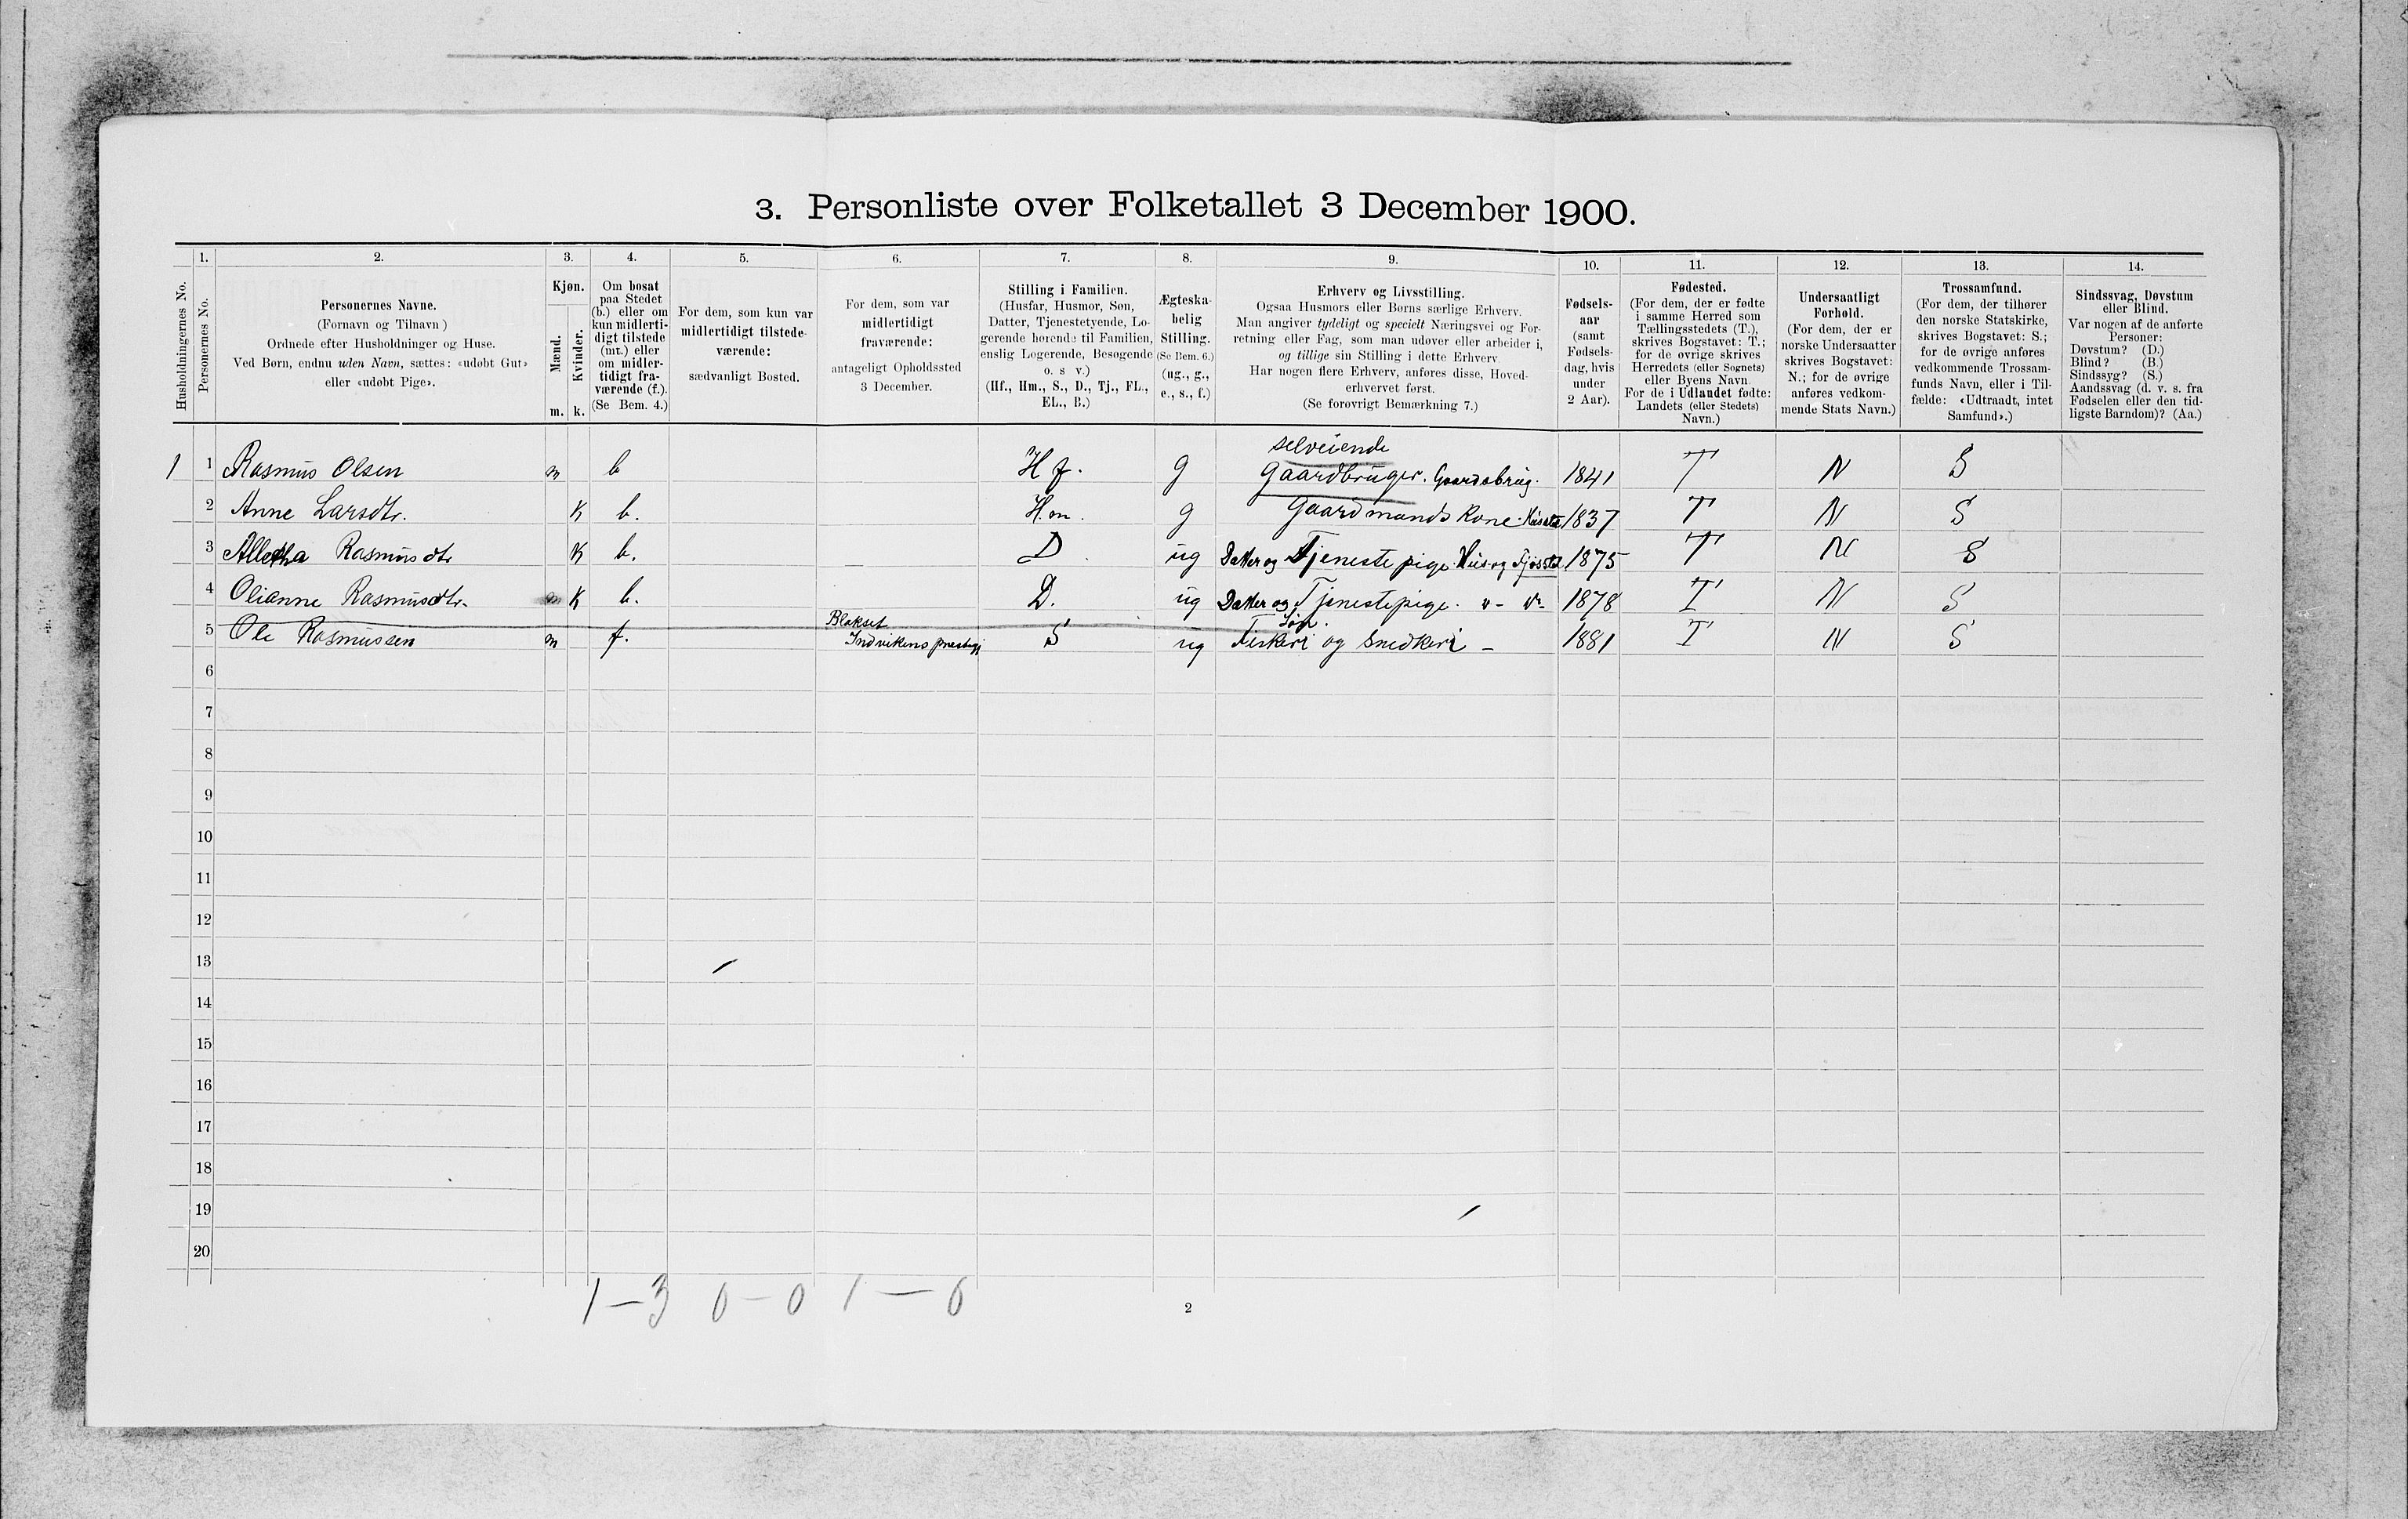 3. Personliste over Folketallet 3 December 1900.
Husholdningernes No.
1.
Personernes No.
2.
Personernes Navne.
(Fornavn og Tilnavn)
Ordnede efter Husholdninger og Huse.
Ved Børn, endnu uden Navn, sættes: «udøbt Gut»
eller «udøbt Pige».
3.
Kjøn.
Mænd.
Kvinder.
m. k.
4.
Om bosat
paa Stedet
(b.) eller om
kun midlerti-
digt tilstede
(mt.) eller
om midler-
tidigt fra-
værende (f.).
(Se Bem. 4.)
5.
For dem, som kun var
midlertidigt tilstede-
værende:
sædvanligt Bosted.
6.
For dem, som var
midlertidigt
fraværende:
antageligt Opholdssted
3 December.
7.
Stilling i Familien.
(Husfar, Husmor, Søn,
Datter, Tjenestetyende, Lo-
gerende hørende til Familien,
enslig Logerende, Besøgende
o. s v.)
(Hf., Hm., S., D., Tj., FL.,
EL., B.)
8.
Ægteska-
belig
Stilling.
(Se Bem. 6.)
(ug., g.,
e., s., f.)
9.
Erhverv og Livsstilling.
Ogsaa Husmors eller Børns særlige Erhverv.
Man angiver tydeligt og specielt Næringsvei og For-
retning eller Fag, som man udøver eller arbeider i,
og tillige sin Stilling i dette Erhverv.
Har nogen flere Erhverv, anføres disse, Hoved-
erhvervet først.
(Se forøvrigt Bemærkning 7.)
10.
Fødsels-
aar
(samt
Fødsels-
dag, hvis
under
2 Aar).
11.
Fødested.
(For dem, der er fødte
i samme Herred som
Tællingsstedets (T.),
skrives Bogstavet: T.;
for de øvrige skrives
Herredets (eller Sognets)
eller Byens Navn.
For de i Udlandet fødte:
Landets (eller Stedets)
Navn.)
12.
Undersaatligt
Forhold.
(For dem, der er
norske Undersaatter
skrives Bogstavet:
N.; for de øvrige
anføres vedkom-
mende Stats Navn.)
13.
Trossamfund.
(For dem, der tilhører
den norske Statskirke,
skrives Bogstavet: S.;
for de øvrige anføres
vedkommende Trossam-
funds Navn, eller i Til-
fælde: «Udtraadt, intet
Samfund».)
14.
Sindssvag, Døvstum
eller Blind.
Var nogen af de anførte
Personer:
Døvstum? (D.)
Blind? (B.)
Sindssyg? (S.)
Aandssvag (d. v. s. fra
Fødselen eller den tid-
ligste Barndom)? (Aa.)
selveiende
1 1 Rasmus Olsen m b Hf. g Gaardbruger. Gaardsbrug. 1841 T N S
2 Anne Larsdtr. K b. Hm. g Gaardmands Kone. 1837 T N S
3 Rasmusdtr K b. D ug Datter og Tjenestepige. Hus og 1875 T N S
4 Olianne Rasmusdtr. K b. D. ug Datter og Tjenestepige. 1878 T N S
Blakset Søn.
5 Ole Rasmussen m f. Indvikens S ug Fiskeri og Snedkeri - 1881 T N S
6
7
8
9
10
11
12
13
14
15
16
17
18
19
20
1-3 0-0 1-0
2